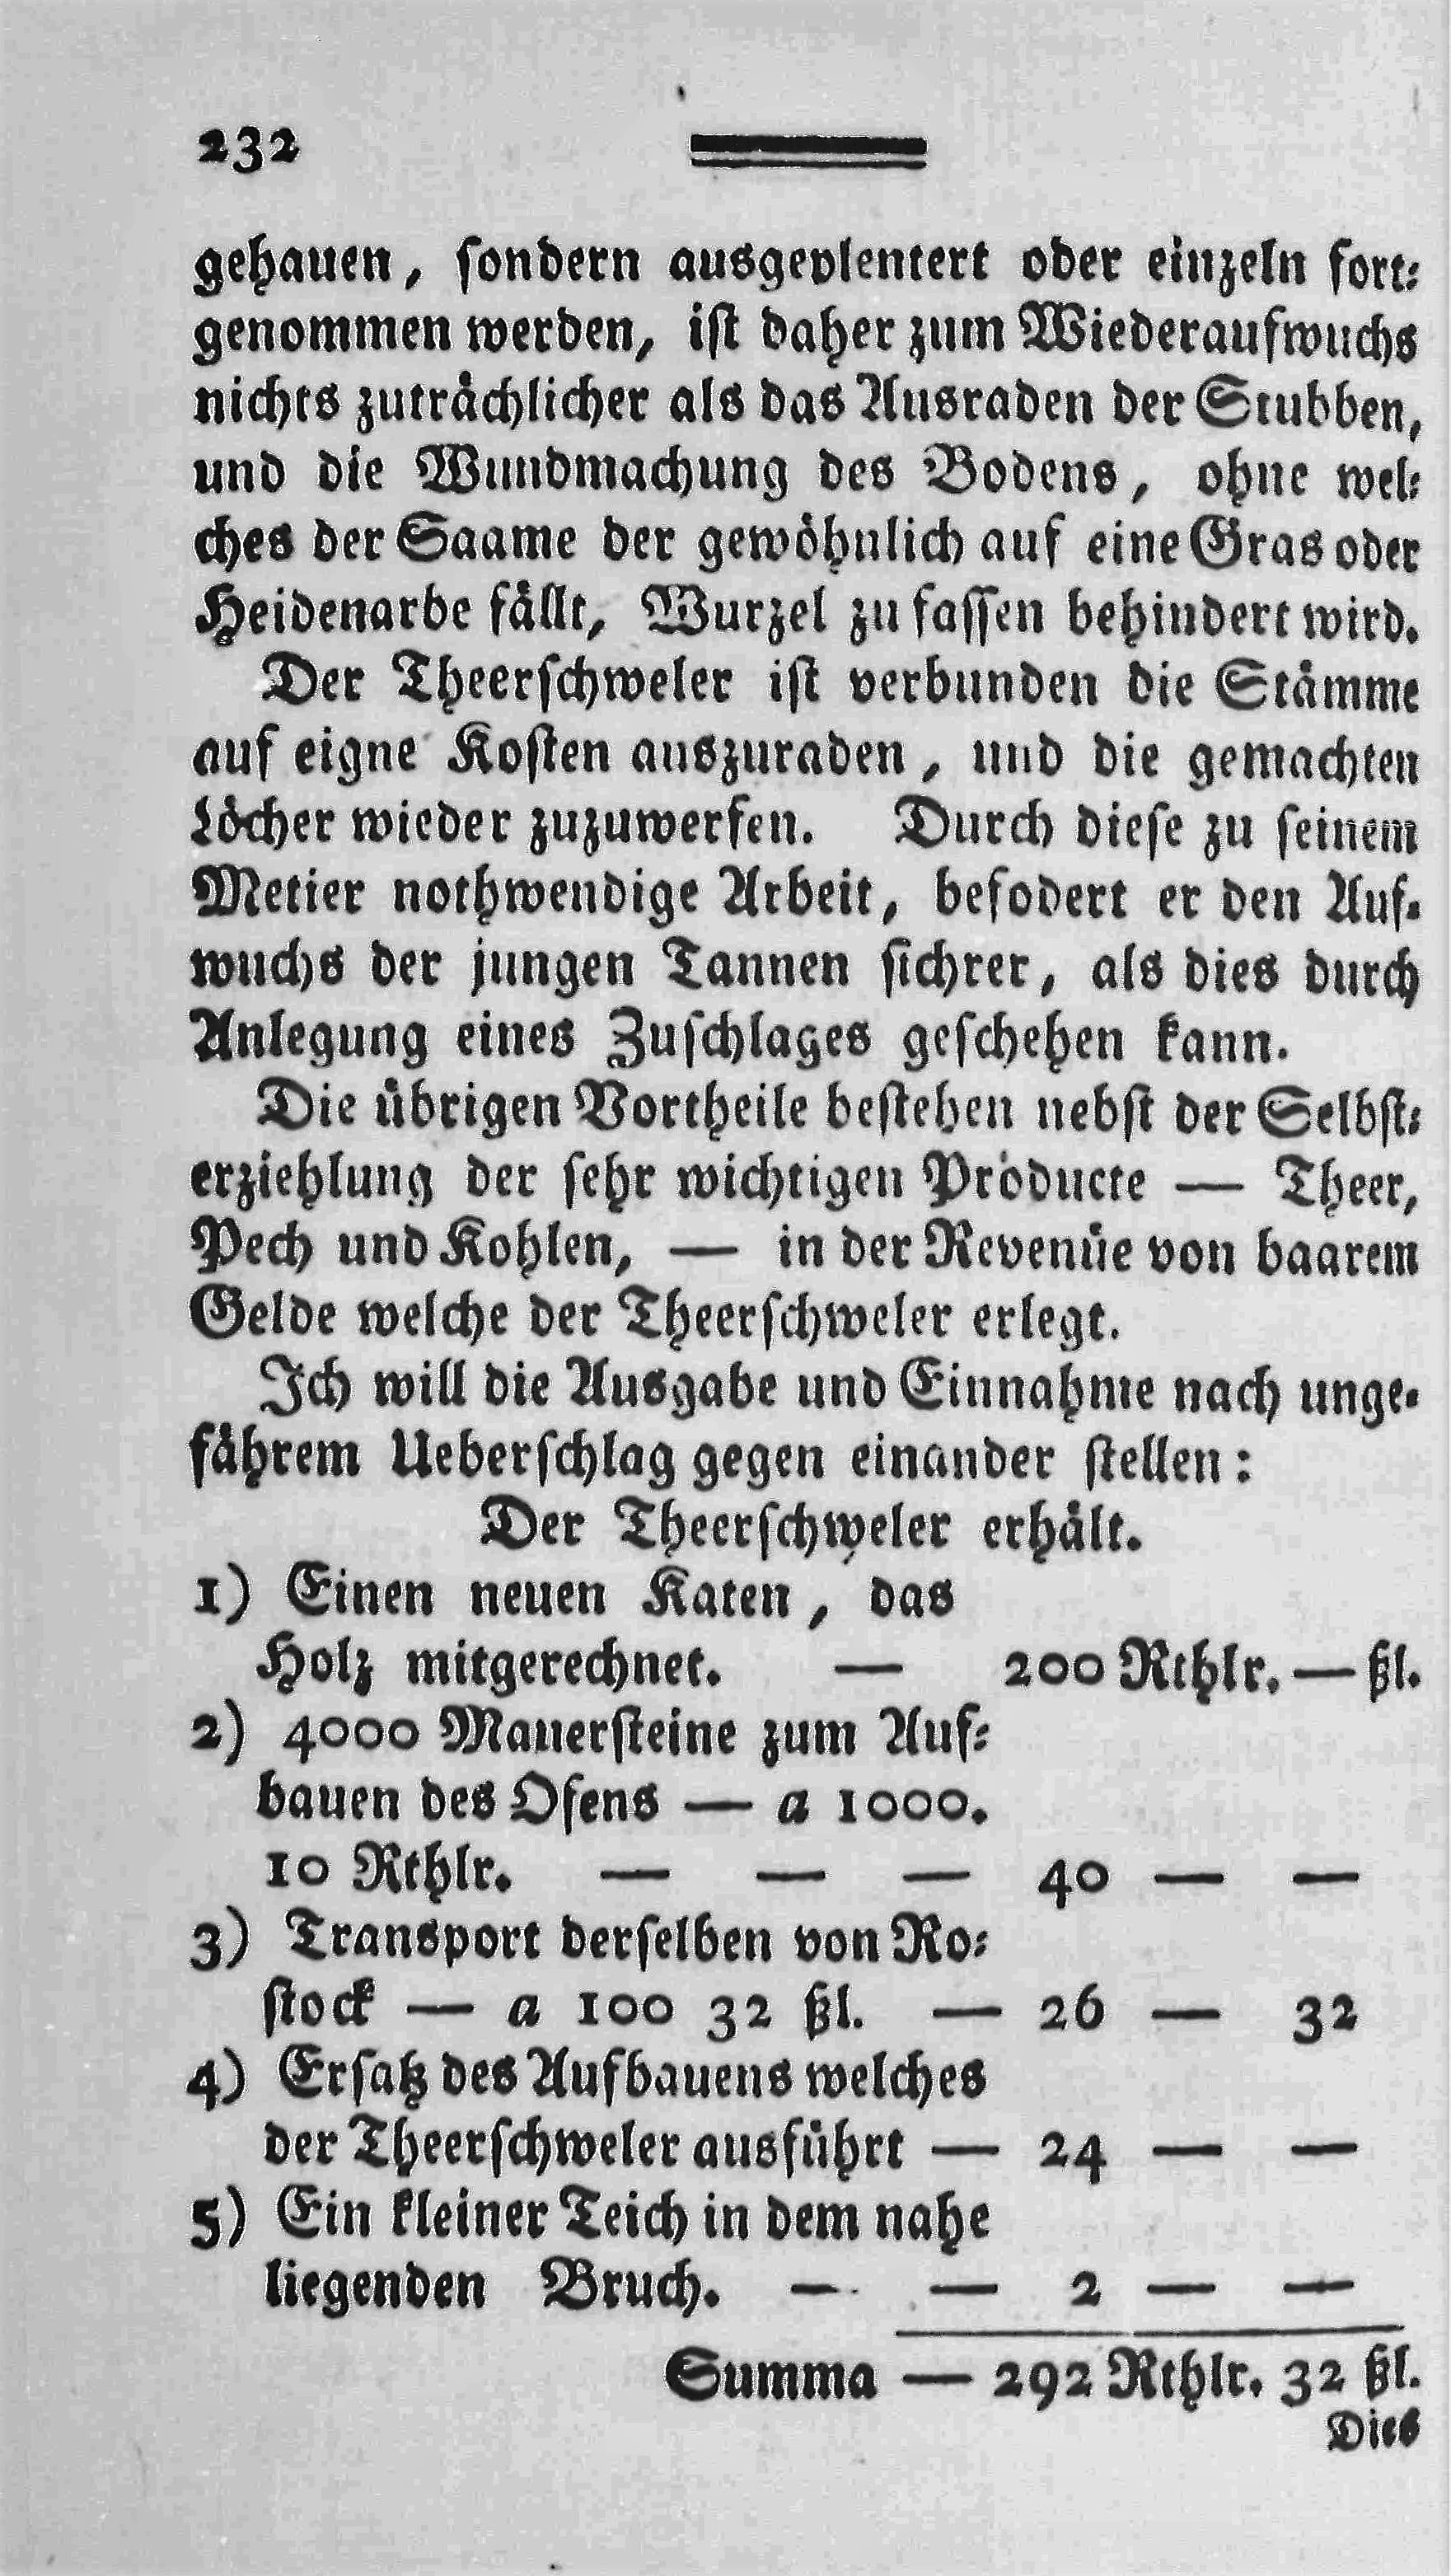 232
gehauen, ſondern ausgeplentert oder einzeln fort⸗
genommen werden, iſt daher zum Wiederaufwuchs
nichts zuträchlicher als das Ausraden der Stubben,
und die Wundmachung des Bodens, ohne wel⸗
ches der Saame der gewöhnlich auf eine Gras oder
Heidenarbe fällt, Wurzel zu faſſen behindert wird.
Der Theerſchweler iſt verbunden die Stämme
auf eigne Koſten auszuraden, und die gemachten
Löcher wieder zuzuwerfen. Durch dieſe zu ſeinem
Metier nothwendige Arbeit, befodert er den Auf⸗
wuchs der jungen Tannen ſichrer, als dies durch
Anlegung eines Zuſchlages geſchehen kann.
Die übrigen Vortheile beſtehen nebſt der Selbſt⸗
erziehlung der ſehr wichtigen Producte — Theer,
Pech und Kohlen, — in der Revenüe von baarem
Gelde welche der Theerſchweler erlegt.
Ich will die Ausgabe und Einnahme nach unge⸗
fährem Ueberſchlag gegen einander ſtellen:
Der Theerſchweler erhält.
1) Einen neuen Katen, das
Holz mitgerechnet. — 200 Rthlr. — ßl.
2) 4000 Mauerſteine zum Auf⸗
bauen des Ofens — a 1000.
10 Rthlr. — — — 40 — —
3) Transport derſelben von Ro⸗
ſtock — a 100 32 ßl. — 26 — 32
4) Erſatz des Aufbauens welches
der Theerſchweler ausführt — 24 — —
5) Ein kleiner Teich in dem nahe
liegenden Bruch. — — 2 — —
Summa — 292 Rthlr. 32 ßl.
Dies